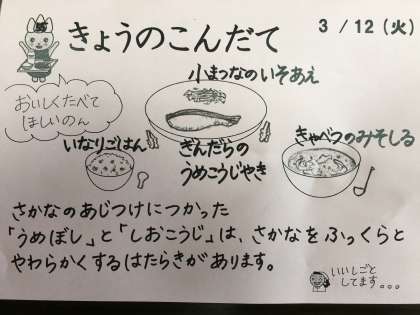 きょうのこんだて
3/12(火)
おいしくたべて
ほしいのん
小まつなのいそあえ
いなりごはん
ぎんだらの
うめこうじやき
きゃべつのみそしる
さかなのあじつけにつかった
「うめぼし」と「しおこうじ」は、さかなをふっくらと
やわらかくするはたらきがあります。
いいしごと
してます。。。